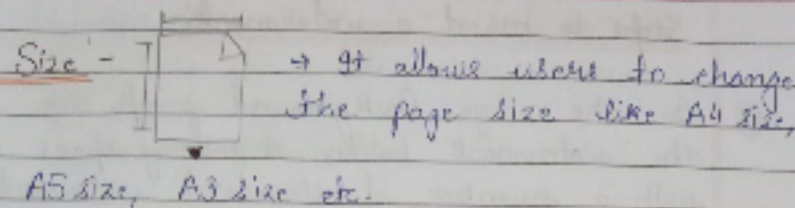 Size - → It allows users to change
the page size like A4 size,
A5 size, A3 size etc.